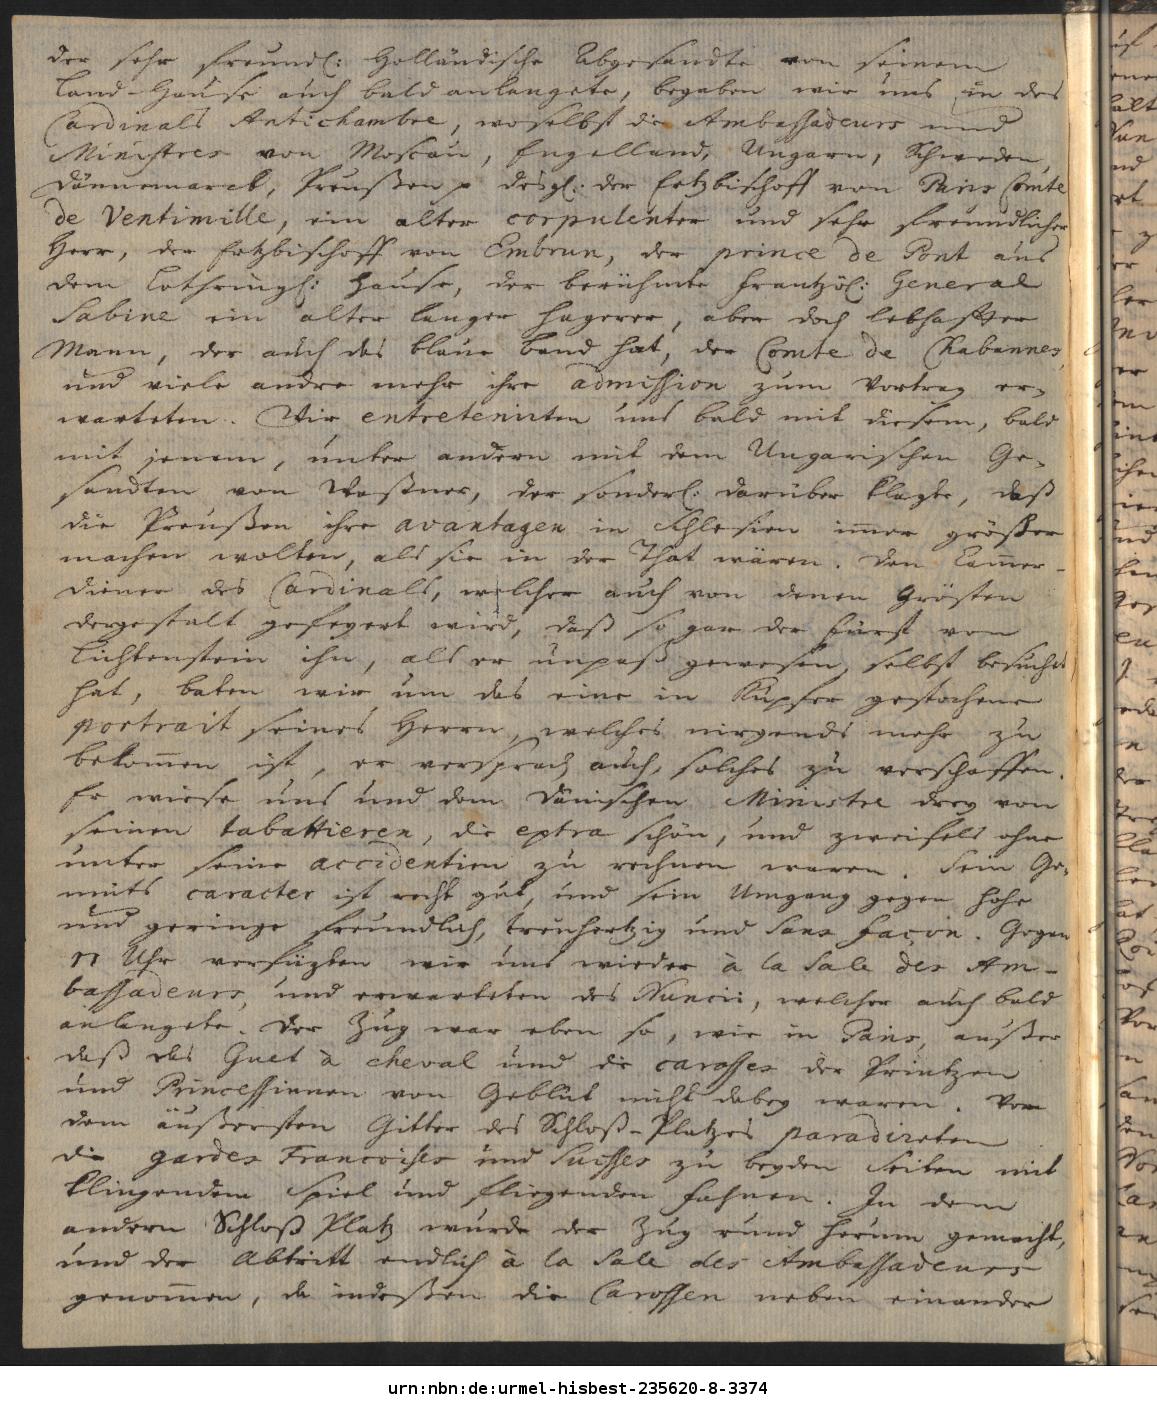 der sehr freundl: Holländische Abgesandte von seinem
Land-Hause auch bald anlangete, begaben wir uns in des
Cardinals Antichambre, woselbst die Ambassadeurs und
Ministres von Moscau, Engelland, Ungarn, Schweden,
Dännemarck, Preußen p desgl: der Ertzbischoff von Paris Comte
de Ventimille, ein alter corpulenter und sehr freundlicher
Herr, der Ertzbischoff von Embrun, der prince de Pont aus
dem Lothringl: Hause, der berühmte Frantzös: General
Sabine ein alter langer hagerer, aber doch lebhaffter
Mann, der auch das blaue Band hat, der Comte de Chabannes,
und viele andre mehr ihre admission zum Vortrag er-
warteten. Wir entretenirten uns bald mit diesem, bald
mit jenem, unter andern mit dem Ungarischen Ge-
sandten von Wasner, der sonderl: darüber klagte, daß
die Preußen ihre avantagen in Schlesien immer größer
machen wolten, als sie in der That wären. Den Cammer-
diener des Cardinals, welcher auch von denen Grösten
dergestalt gefeyert wird, daß so gar der Fürst von
Lichtenstein ihn, als er unpaß gewesen, selbst besucht
hat, baten wir um das eine in Kupfer gestochene
portrait seines Herrn, welches nirgends mehr zu
bekommen ist, er versprach auch, solches zu verschaffen.
Er wiese uns und dem Dänischen Ministre drey von
seinen tabattieren, die extra schön, und zweifels ohne
unter seine accidentien zu rechnen waren. Sein Ge-
müts caracter ist recht gut, und sein Umgang gegen hohe
und geringe freundlich, treuhertzig und sans façon. Gegen
11 Uhr verfügten wir uns wieder à la Sale des Am-
bassadeurs, und erwarteten des Nuncii, welcher auch bald
anlangete. Der Zug war eben so, wie in Paris, außer
daß das Guet à cheval und die carosses der Printzen
und Princessinnen von Geblüt nicht dabey waren. Vor
dem äußersten Gitter des Schloß-Platzes paradireten
die gardes Francoises und Suisses zu beyden Seiten mit
klingendem Spiel und fliegenden Fahnen. In dem
andern Schloß Platz wurde der Zug rund herum gemacht,
und der Abtritt endlich à la Sale des Ambassadeurs
genommen, da indeßen die Carossen neben einander
urn:nbn:de:urmel-hisbest-235620-8-3374